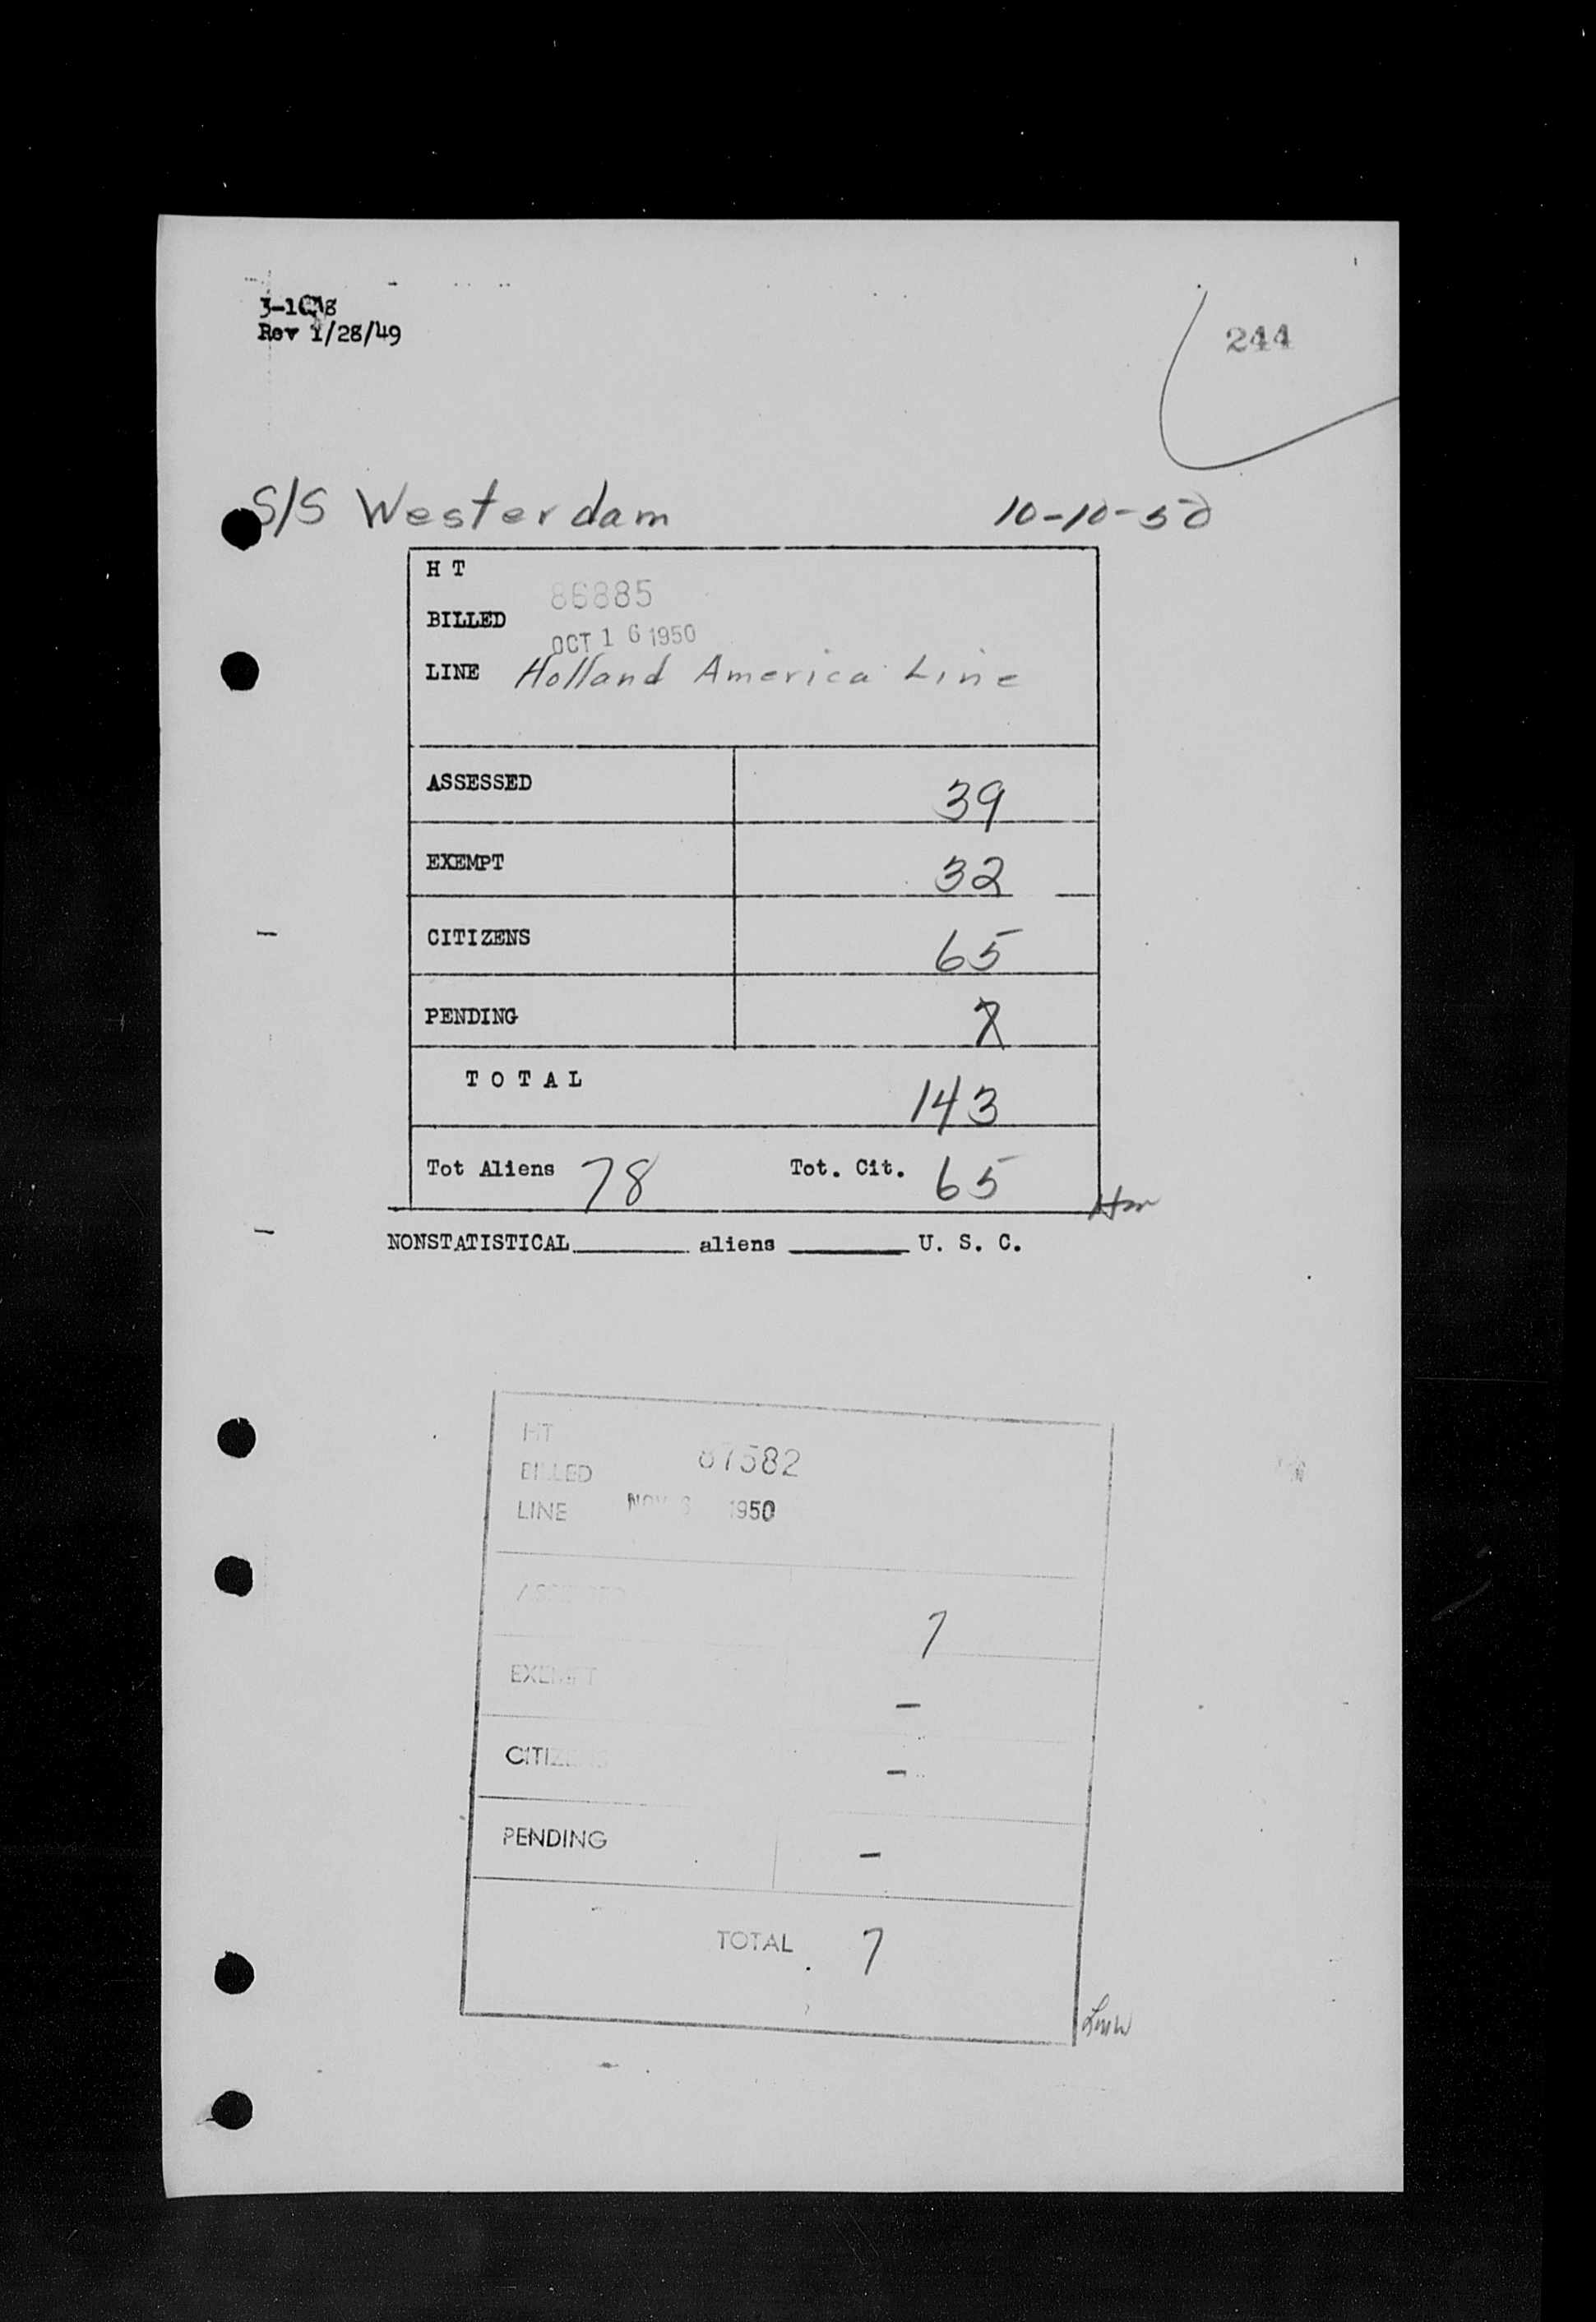 Rev 1/28/49
244
S/S Westerdam 10-10-50
H T
86885
BILLED
OCT 16 1950
LINE Holland America Line
ASSESSED 39
EXEMPT 32
CITIZENS 65
PENDING 7
T O T A L 143
Tot Aliens 78 Tot. Cit. 65
NONSTATISTICAL aliens U. S. C.
HT
BILLED 87582
LINE NOV 1950
ASSESSED 7
EXEMPT -
CITIZENS -
PENDING -
TOTAL 7